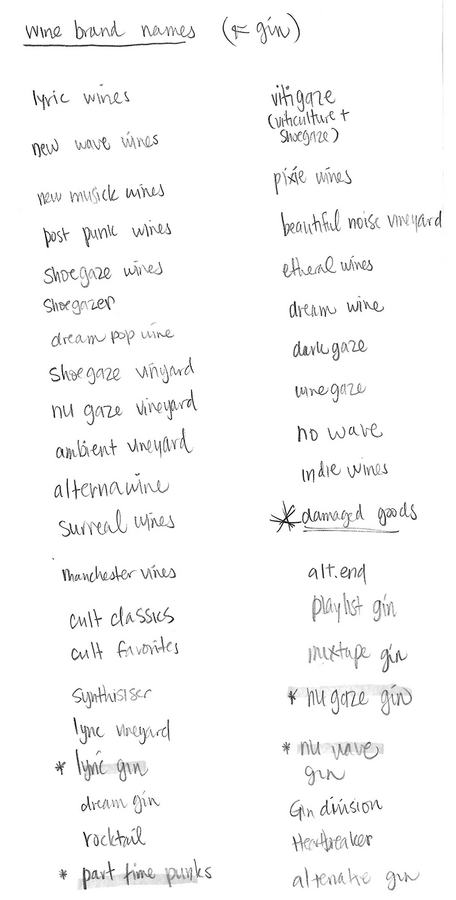 wine brand names (+ gin)
lyric wines
new wave wines
new musick wines
post punk wines
shoegaze wines
shoegazer
dream pop wine
shoegaze vinyard
nu gaze vineyard
ambient vineyard
alternawine
surreal wines
manchester vines
cult classics
cult favorites
synthisiser
lyric vineyard
* lyric gin
dream gin
rocktail
* part time punks
vitigaze
(viticulture +
shoegaze)
pixie wines
beautiful noise vineyard
etheral wines
dream wine
dark gaze
wine gaze
no wave
indie wines
* damaged goods
alt.end
playlist gin
mixtape gin
* nu gaze gin
* nu wave
gin
Gin division
Heartbreaker
alternate gin